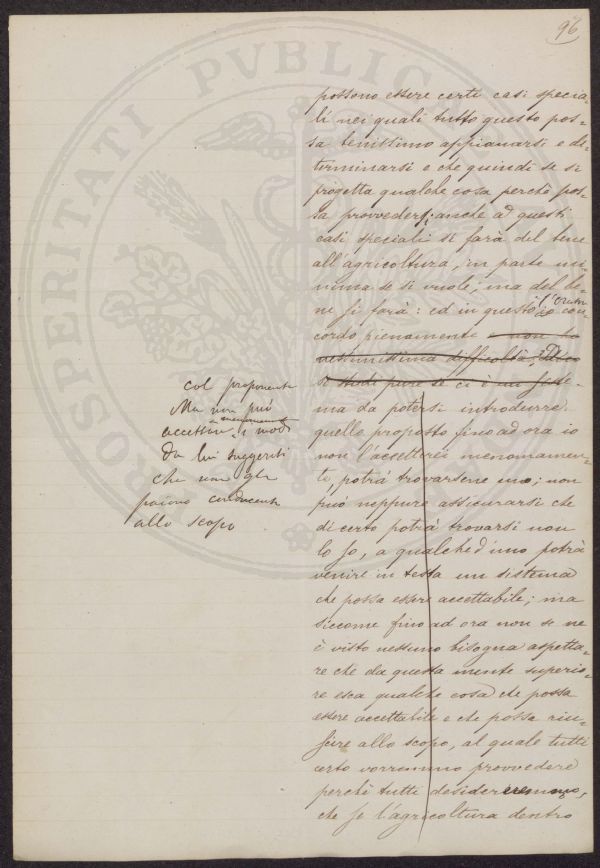 96
possono essere certi casi specia-
li nei quali tutto questo pos-
sa benissimo appianarsi e de-
terminarsi e che quindi se si
progetta qualche cosa perchè pos-
sa provvedersi anche a questi
casi speciali si farà del bene
all'agricoltura, in parte mi-
nima se si vuole, ma del be-
ne si farà: ed in questo io con-
cordo pienamente e non ho
nessunissima difficoltà,
si studi pure se ci è un siste-
ma da potersi introdurre.
quello proposto fino ad ora io
non l'accetterei menomamen-
te, potrà trovarsene uno; non
può neppure assicurarsi che
di certo potrà trovarsi non
lo so, a qualched'uno potrà
venire in testa un sistema
che possa essere accettabile; ma
siccome fino ad ora non se ne
è visto nessuno bisogna aspetta-
re che da questa mente superio-
re esca qualche cosa che possa
essere accettabile e che possa riu-
scire allo scopo, al quale tutti
certo vorremmo provvedere
perchè tutti desidereremmo,
che se l'agricoltura dentro
col proponente
Ma non può
accettare i modi
da lui suggeriti
che non gli
paiono conducenti
allo scopo
PROSPERITATI PVBLICAE